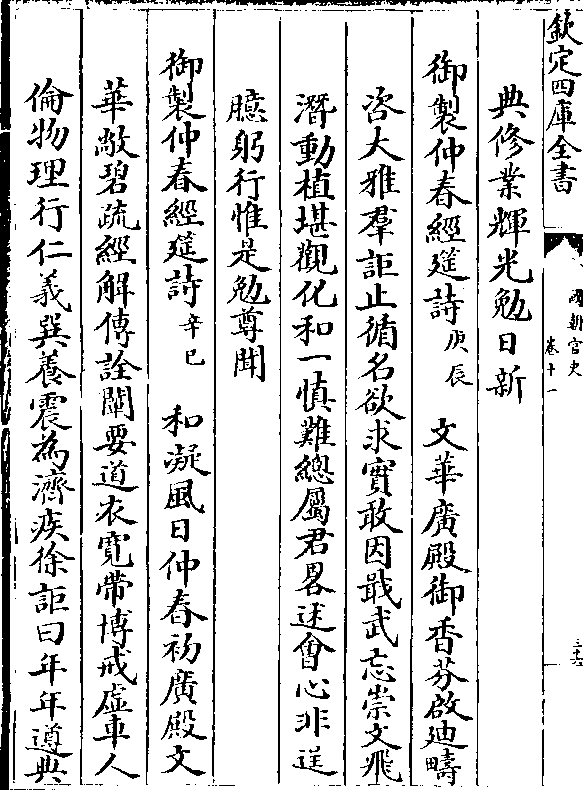 欽定四庫全書
國朝宮史
卷十一
三十六
典修業輝光勉日新
御製仲春經筵詩庚辰　文華廣殿御香芬啟廸疇
咨大雅羣詎止循名欲求實敢因戢武忘崇文飛
潛動植堪觀化和一慎難總屬君畧述會心非逞
臆躬行惟是勉尊聞
御製仲春經筵詩辛巳　和凝風日仲春初廣殿文
華敞碧疏經解傳詮闡要道衣寛帶博戒虛車人
倫物理行仁義巽養震為濟疾徐詎曰年年遵典